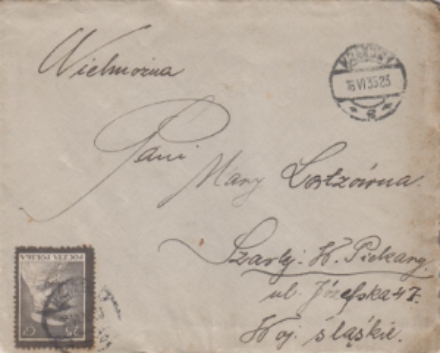 Wielmożna
Pani
Mary Lortzówna.
Szarlej. W. Piekary.
ul. Józefska 47.
Woj. śląskie.
16 VI 35 23
* e *
POCZTA POLSKA
25